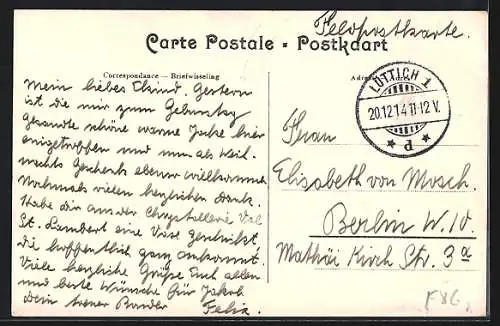 Feldpostkarte.
Carte Postale - Postkaart
Correspondance — Briefwisseling
LÜTTICH 1
20.12.14 11-12 V.
* d *
Mein liebes Kind. Gestern
ist die mir zum Geburtstag
gesandte schöne warme Jacke hier
eingetroffen und nun als Weih-
nachts Geschenk ebenso willkommen
Nochmals vielen herzlichen Dank.
Habe Dir aus der Chrystallerie Val
St. Lambert eine Vase geschickt,
die hoffentlich ganz ankommt.
Viele herzliche Grüße Euch allen
und beste Wünsche für Jakob
Dein treuer Bruder Felix.
Frau
Elisabeth von Mosch.
Berlin W. 10.
Mathäi Kirch Str. 3a